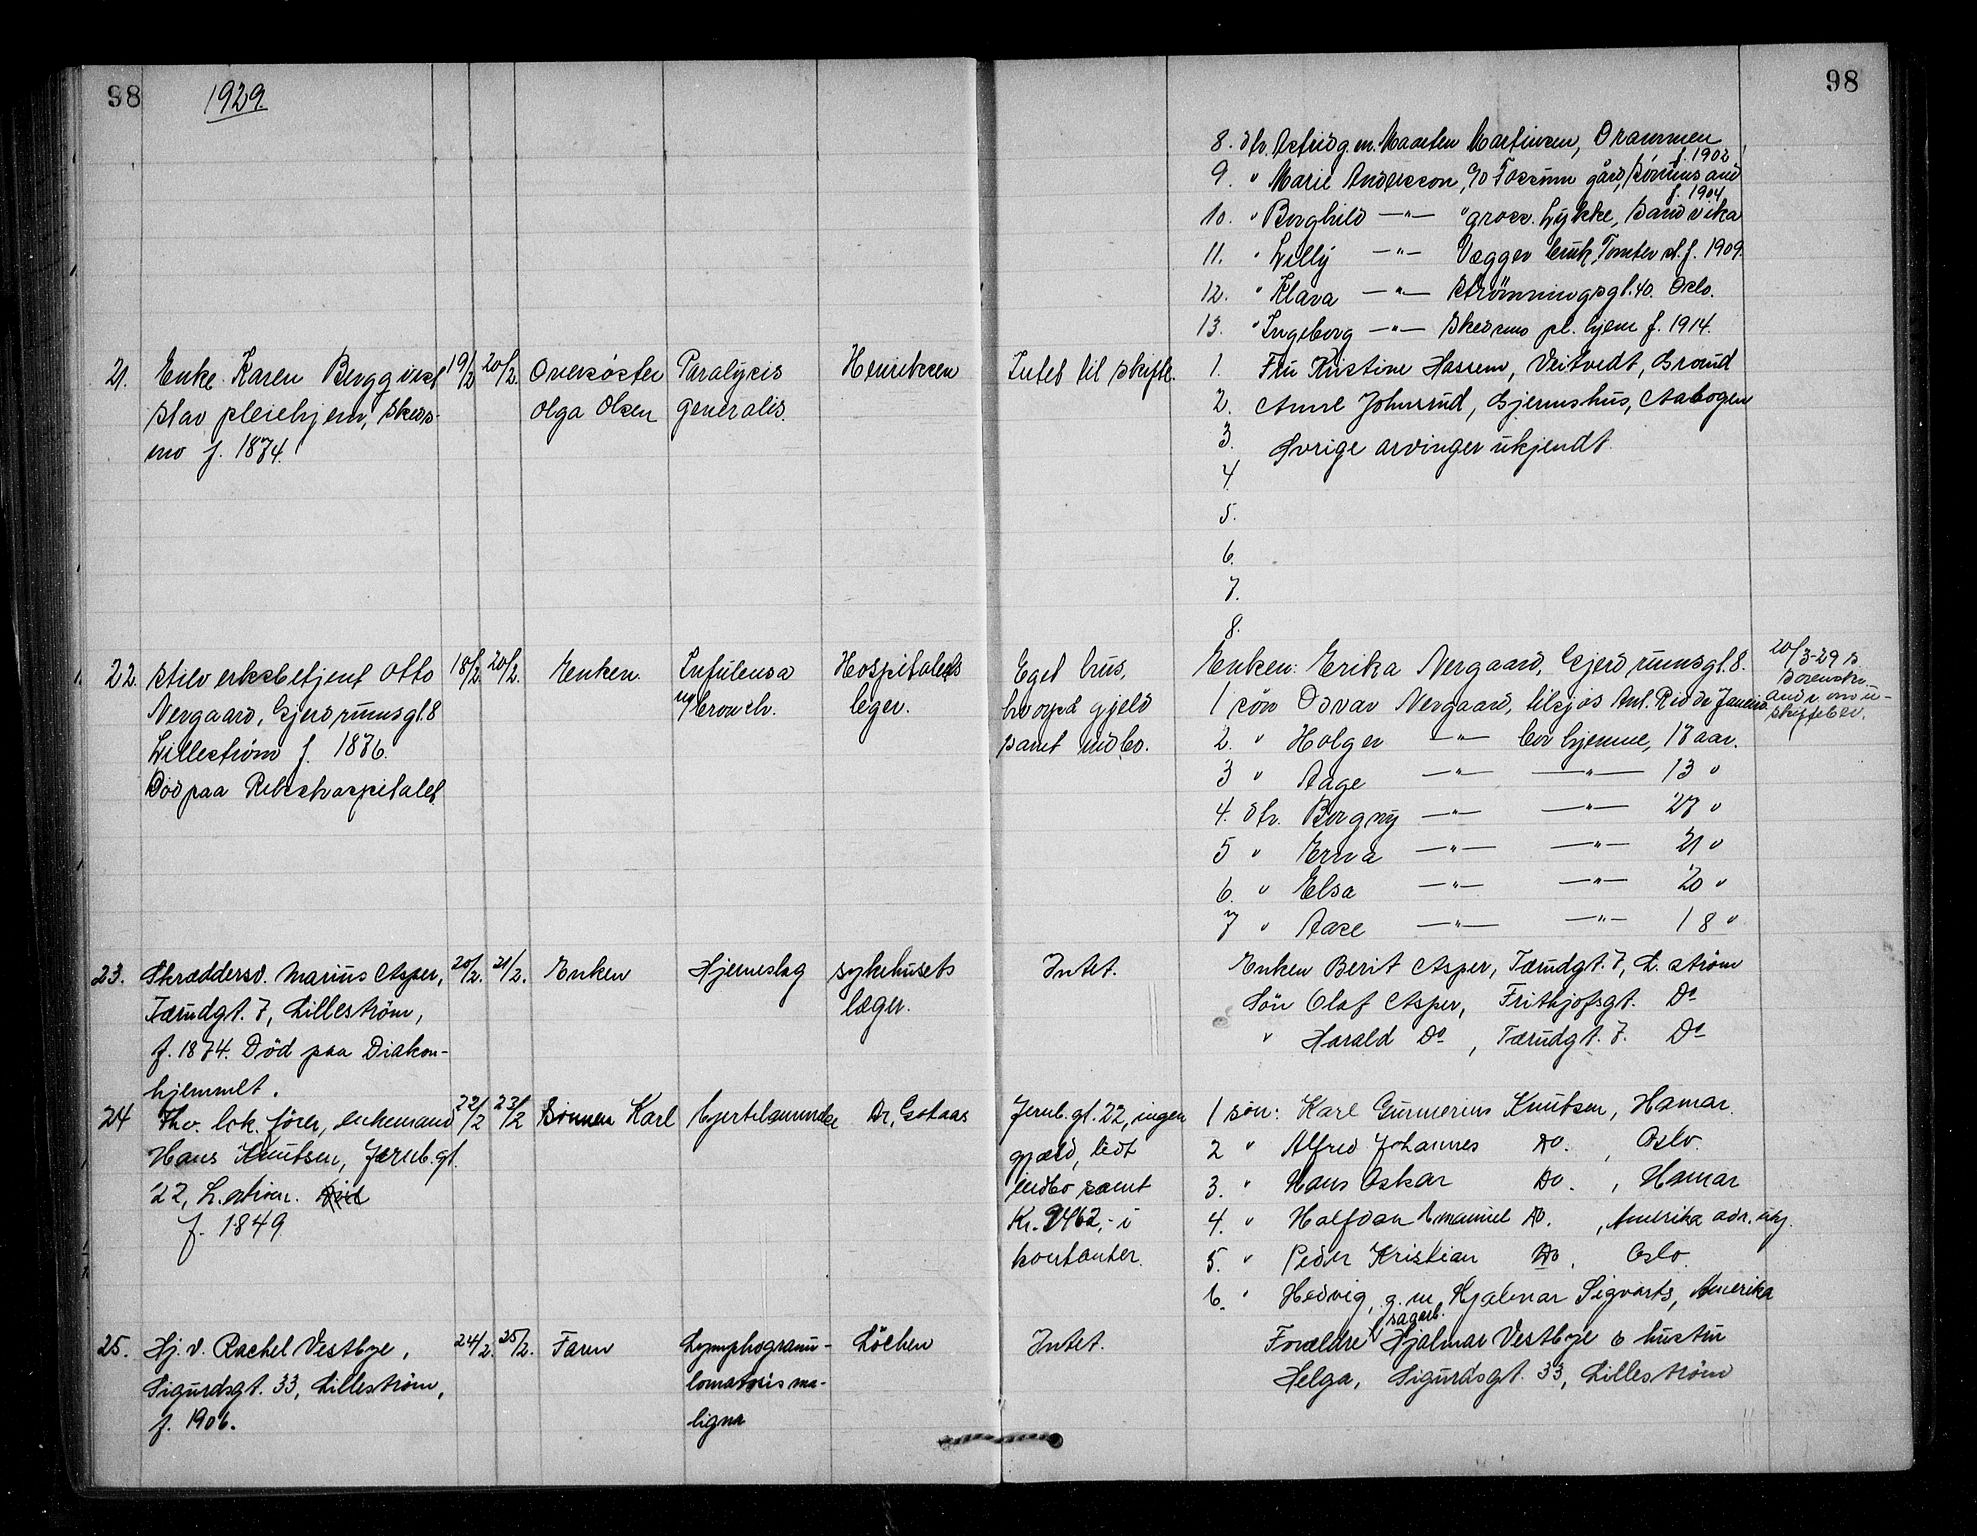 98
1929.
98
8. dtr. Astrid g.m. Maarten Martinsen, Drammen
f. 1902
9. " Marie Andersson, c/o Fossum gård,
f. 1904
10. " Borghild —"— " gross. Lykke, Sandvika
11. " Lilly —"— Vægger f. 1909.
12. " Klara —"— Strømningsgt. 40. Oslo.
13. " Ingeborg —"— Skedsmo pl. hjem f. 1914.
21. Enke Karen Bergqvist
Stav pleiehjem, Skeds-
mo f. 1874.
19/2 20/2.
Oversøster
Olga Olsen
Paralysis
generalis.
Henriksen
Intet til skifte.
1. Fru Kristine Hassem, Veitvedt, Grorud
2. Anne Johnsrud, Gjermshus, Aabogen
3. Øvrige arvinger ukjendt.
4.
5.
6.
7.
8.
22. Otto
Nergaard, Gjerdrumsgt. 8
Lillestrøm f. 1876.
Død paa Rikshospitalet
18/2. 20/2.
Enken.
Infulensa
m/ bronch.
Hospitalets
leger.
Eget hus,
hvorpå gjeld
samt indbo.
Enken: Erika Nergaard, Gjerdrumsgt. 8.
1 søn Osvar Nergaard, tilsjøs Ant. Rio de Janeiro
2. " Holger —"— bor hjemme, 17 aar.
3 " Aage —"— —"— 13 "
4. dtr. Borgny —"— —"— 27 "
5 " Erna —"— —"— 21 "
6. " Elsa —"— —"— 20 "
7 " Aase —"— —"— 18 "
20/3-29 s.
Sorenskr.
and. om u-
skiftebev.
23. Skræddersv. Marius Asper,
Tærudgt. 7, Lillestrøm,
f. 1874. Død paa Diakon-
hjemmet.
20/2. 21/2.
Enken
Hjerneslag
sykehusets
læger.
Intet.
Enken Berit Asper, Tærudgt. 7, L. strøm
Søn Olaf Asper, Frithjofsgt. Do
" Harald Do, Tærudgt. 7. Do
24 Fhv. lok. fører, enkemand
Hans Knutsen, Jernb. gt.
22, L. strøm.
f. 1849.
22/2 23/2
Sønnen Karl
hjertelammelse
Dr. Gotaas
Jernb. gt. 22, ingen
gjæld, lidt
indbo samt
Kr. 9462,- i
kontanter.
1 søn: Karl Gunnerius Knutsen, Hamar.
2 " Alfred Johannes Do. , Oslo.
3. " Hans Oskar Do. , Hamar
4. " Halfdan Emanuel Do. , Amerika adr. ukj.
5. " Peder Kristian Do , Oslo.
6. " Hedvig, g.m. Hjalmar Sigvarts, Amerika
25. Hj. v. Rachel Vestbye,
Sigurdsgt. 33, Lillestrøm,
f. 1906.
24/2. 25/2.
Faren
Lymphogranu-
lomatosis ma-
ligna
Löchen
Intet.
sagarb.
Forældre Hjalmar Vestbye o hustru
Helga, Sigurdsgt. 33, Lillestrøm